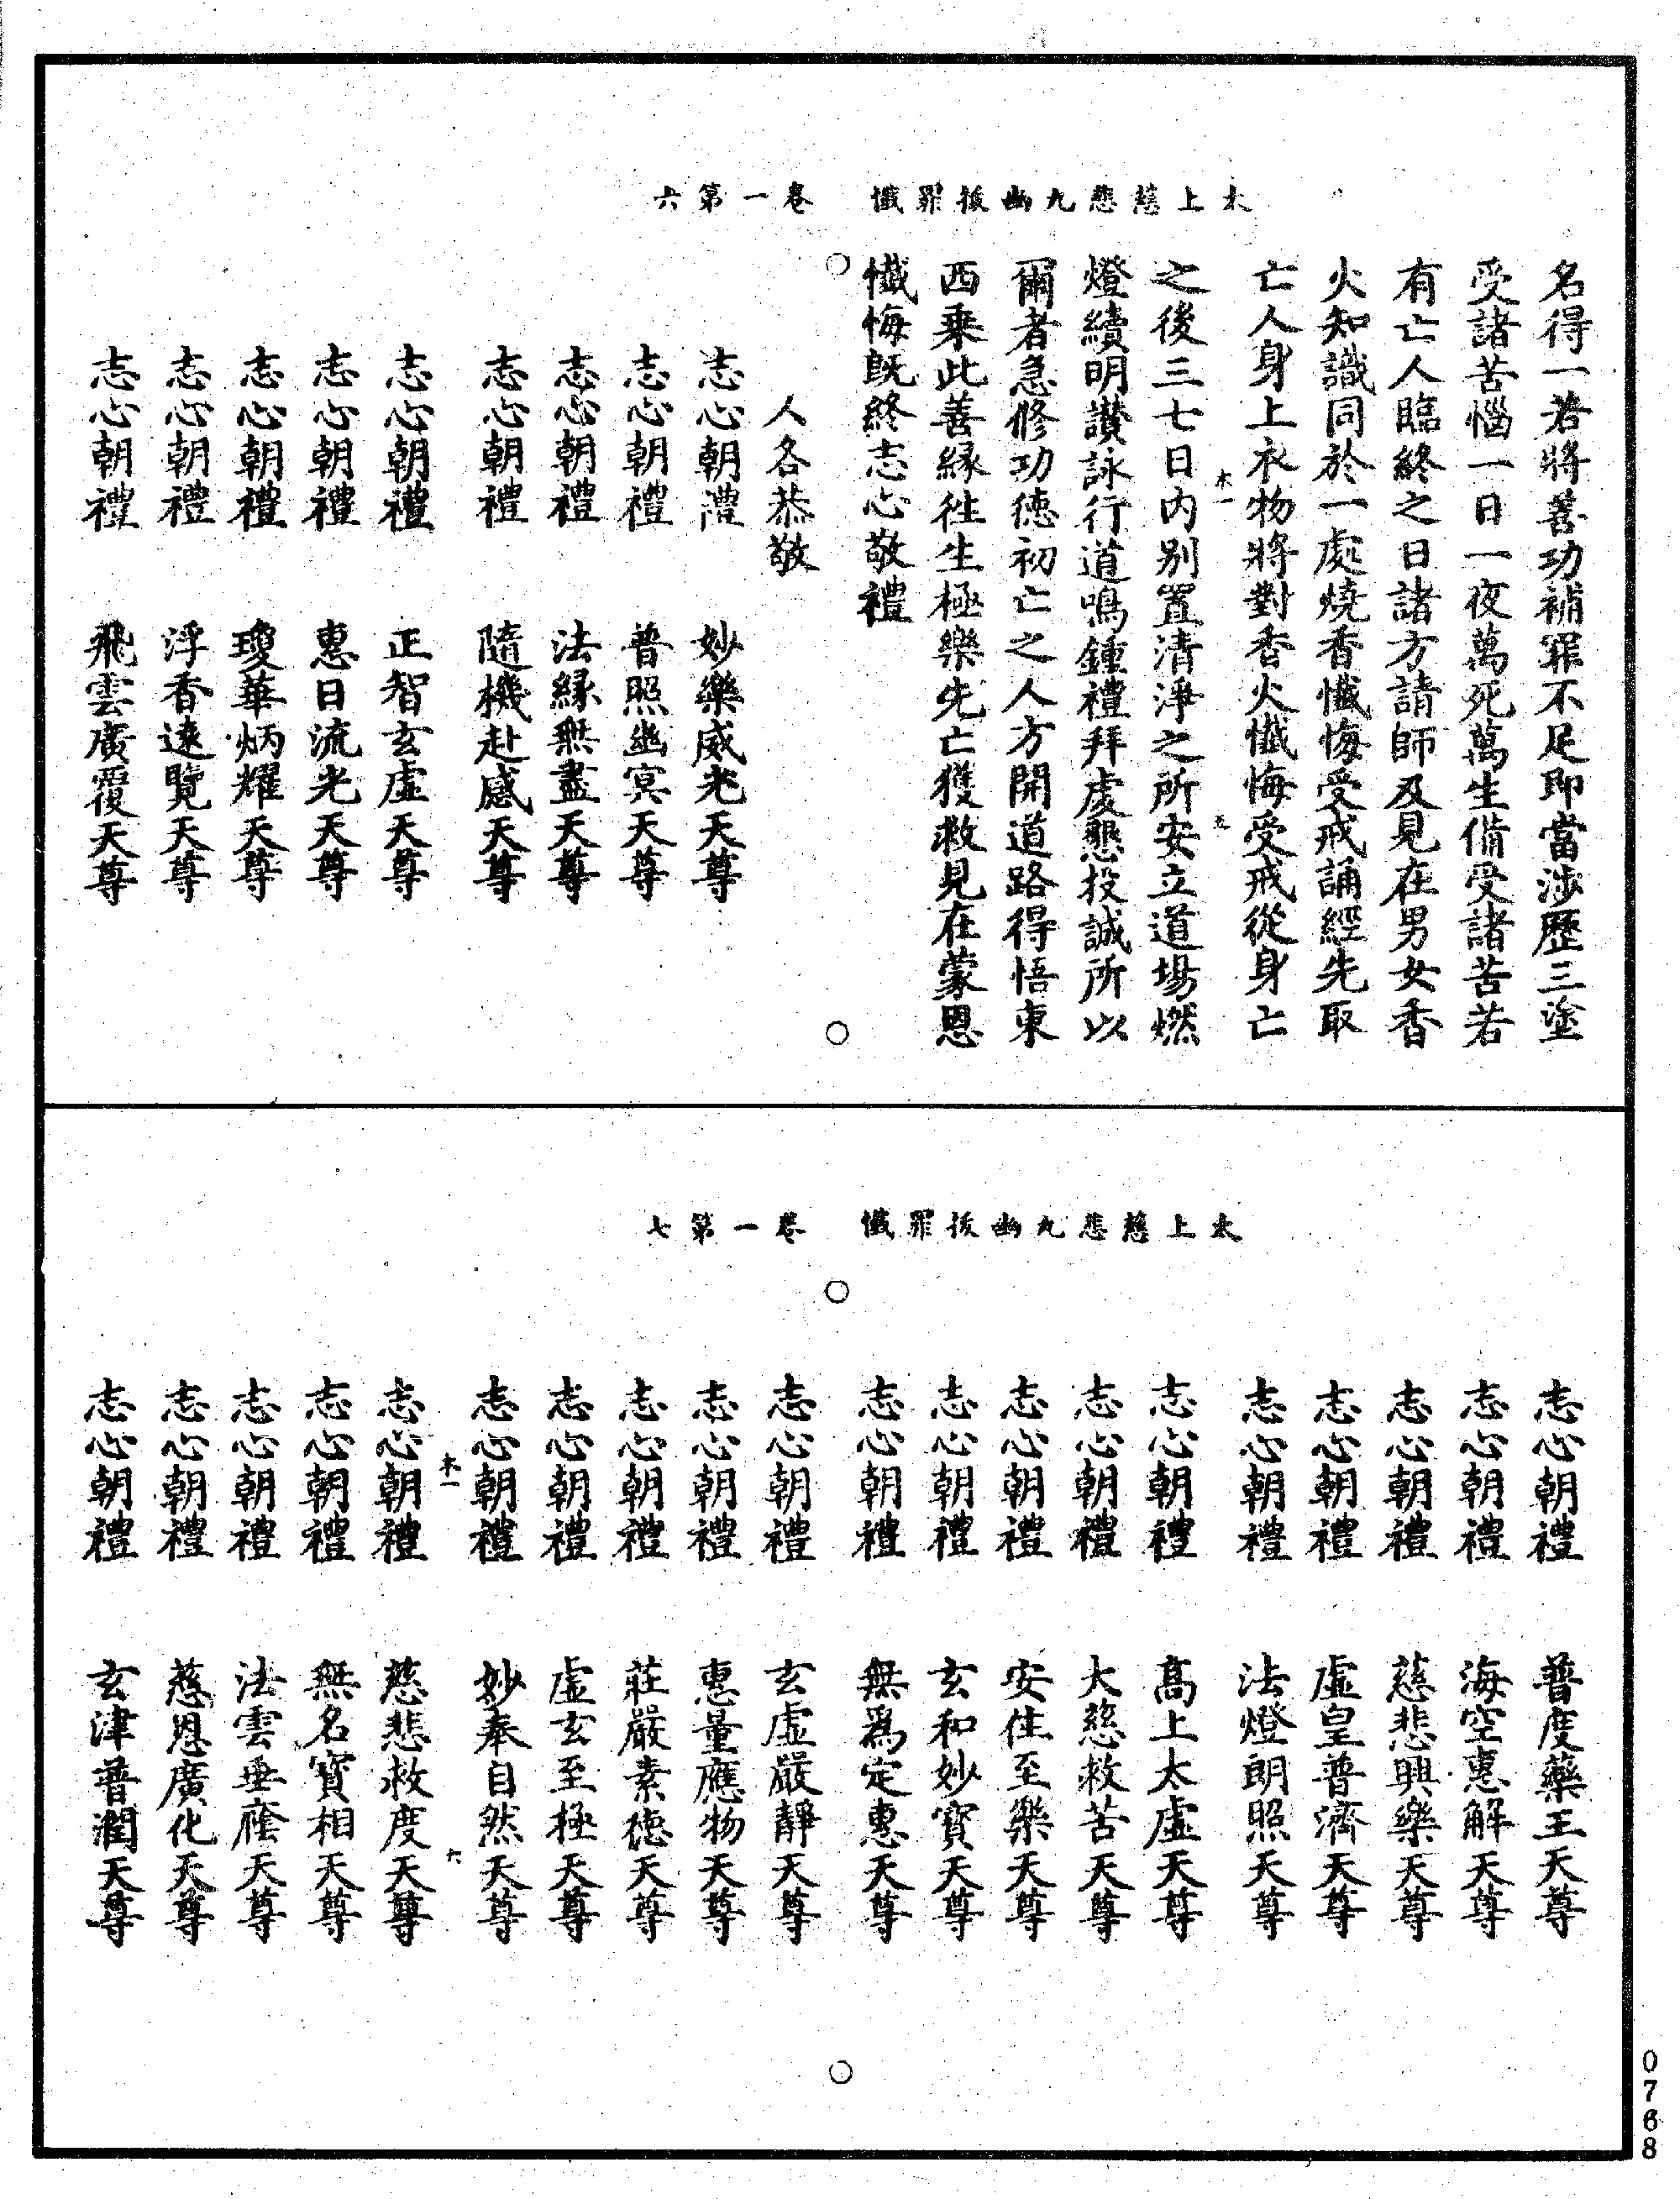 太上慈悲九幽拔罪懺　卷一第六
名得一若將善功補罪不足即當涉歷三塗
受諸苦惱一日一夜萬死萬生備受諸苦若
有亡人臨終之日諸方請師及見在男女香
火知識同於一處燒香懺悔受戒誦經先取
亡人身上衣物將對香火懺悔受戒從身亡
木一　五
之後三七日內別置清淨之所安立道場燃
燈續明讃詠行道鳴鍾禮拜虔懇投誠所以
爾者急修功德初亡之人方開道路得悟東
西乗此善緣往生極樂先亡獲救見在蒙恩
懺悔既終志心敬禮
人各恭敬
志心朝禮　妙樂威光天尊
志心朝禮　普照幽冥天尊
志心朝禮　法緣無盡天尊
志心朝禮　隨機赴感天尊
志心朝禮　正智玄虛天尊
志心朝禮　惠日流光天尊
志心朝禮　瓊華炳耀天尊
志心朝禮　浮香遠覽天尊
志心朝禮　飛雲廣覆天尊
太上慈悲九幽拔罪懺　卷一第七
志心朝禮　普度藥王天尊
志心朝禮　海空惠解天尊
志心朝禮　慈悲興樂天尊
志心朝禮　虛皇普濟天尊
志心朝禮　法燈朗照天尊
志心朝禮　高上太虛天尊
志心朝禮　大慈救苦天尊
志心朝禮　安住至樂天尊
志心朝禮　玄和妙寳天尊
志心朝禮　無為定惠天尊
志心朝禮　玄虛嚴靜天尊
志心朝禮　惠量應物天尊
志心朝禮　莊嚴素德天尊
志心朝禮　虛玄至極天尊
志心朝禮　妙奉自然天尊
木一　六
志心朝禮　慈悲救度天尊
志心朝禮　無名寳相天尊
志心朝禮　法雲垂廕天尊
志心朝禮　慈恩廣化天尊
志心朝禮　玄津普潤天尊
0768